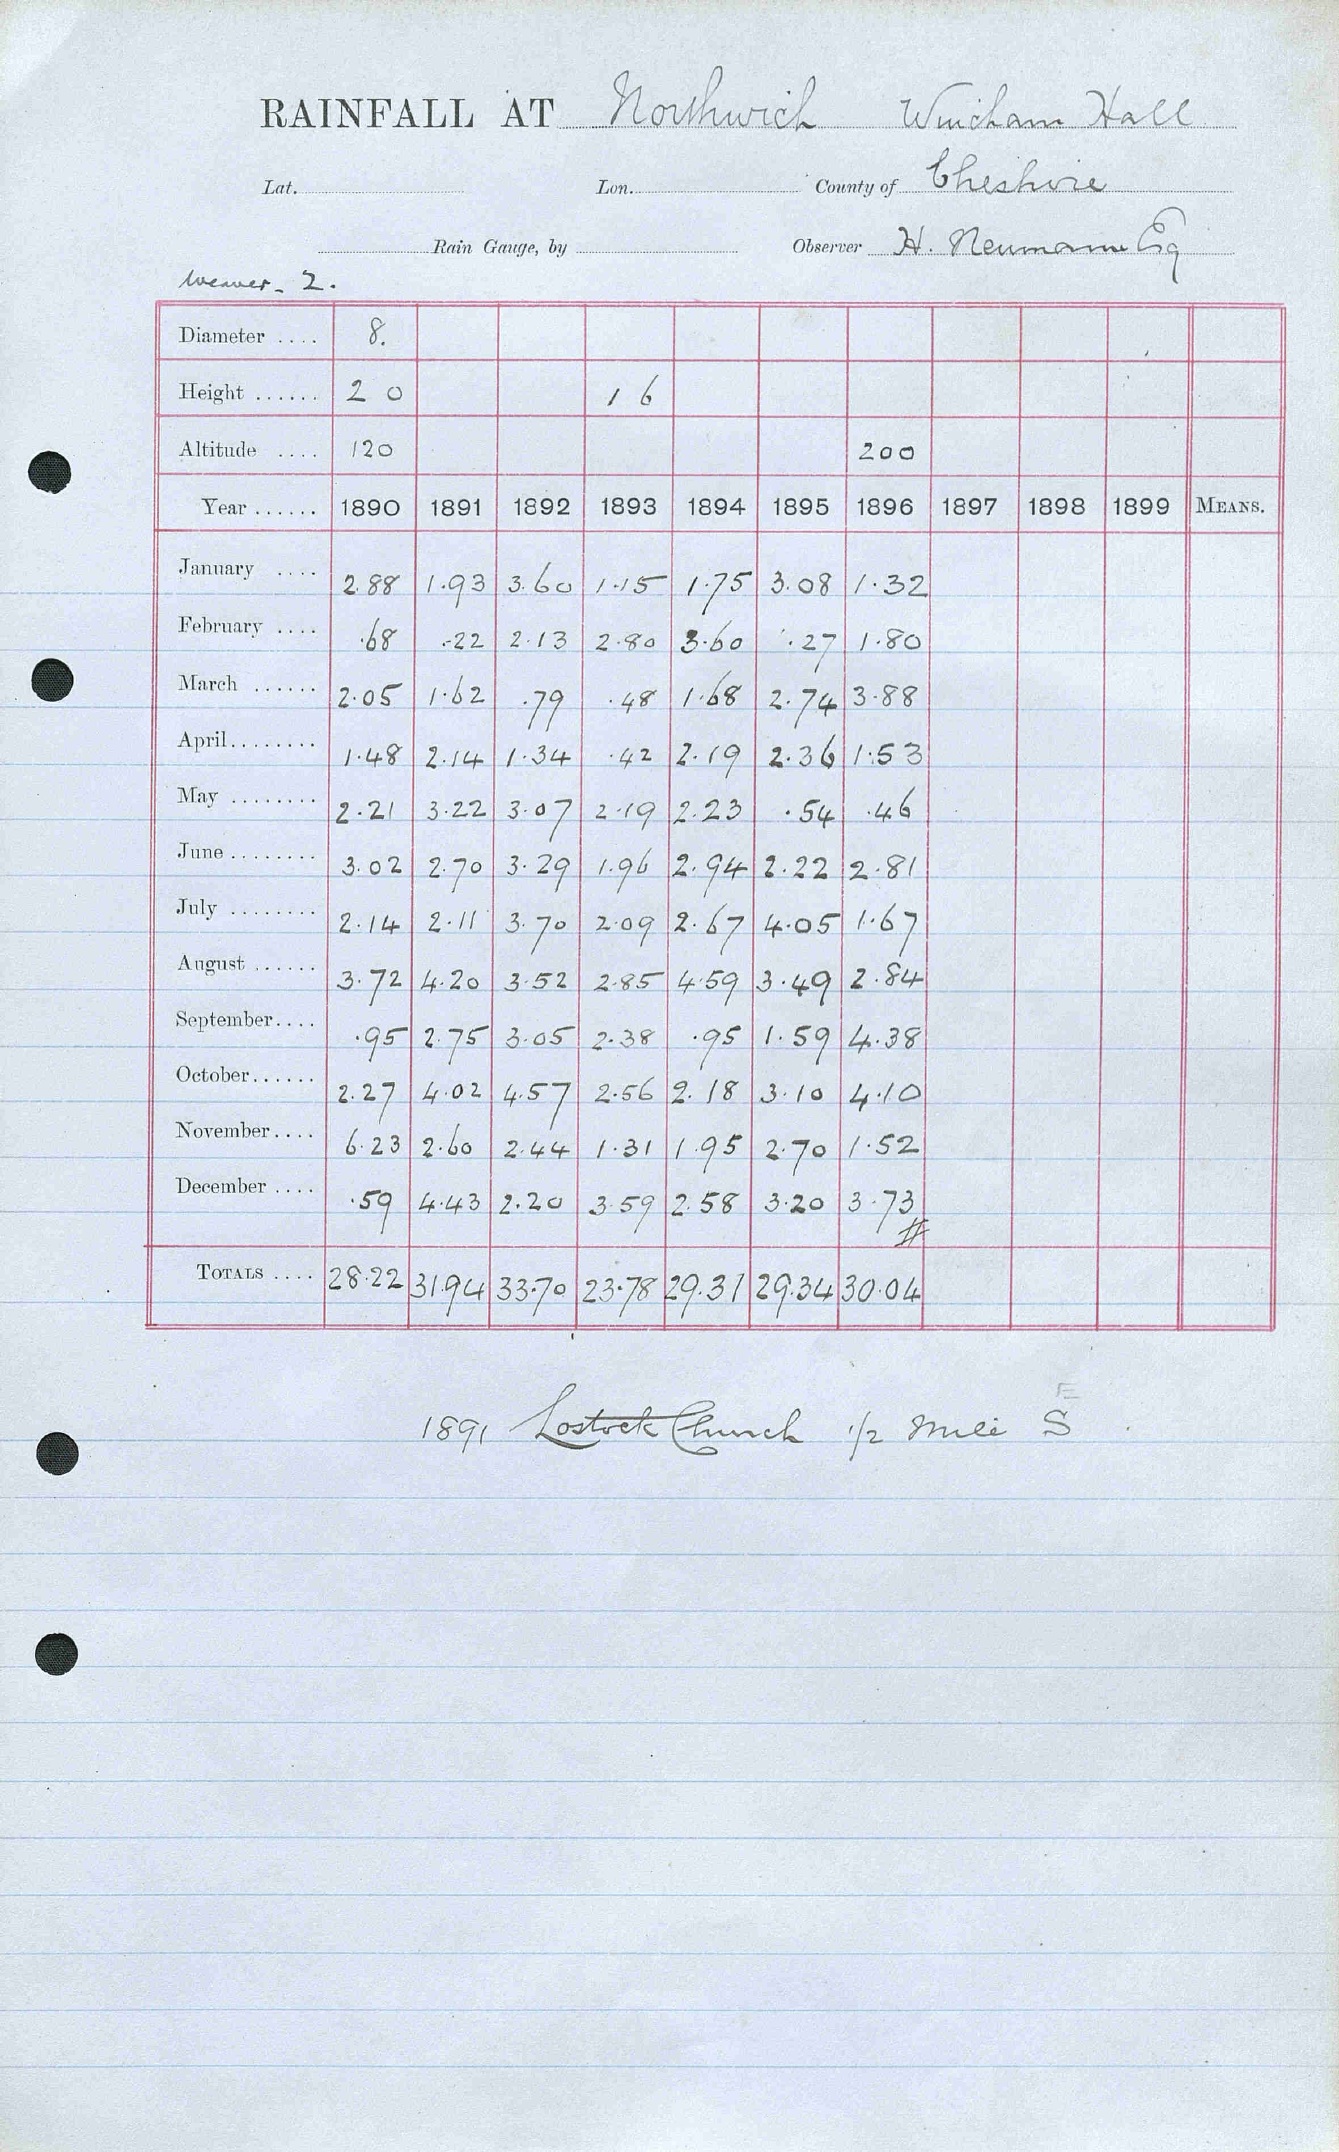 RAINFALL AT Northwich Wincham Hall
Lat. Lon. County of Cheshire
Rain Gauge, by Observer H. Neumann Esq
Weaver - 2.
Diameter .... 8.
Height ...... 2 0 1 6
Altitude .... 120 200
Year ...... 1890 1891 1892 1893 1894 1895 1896 1897 1898 1899 MEANS.
January .... 2.88 1.93 3.60 1.15 1.75 3.08 1.32
February .... .68 .22 2.13 2.80 3.60 .27 1.80
March ...... 2.05 1.62 .79 .48 1.68 2.74 3.88
April........ 1.48 2.14 1.34 .42 2.19 2.36 1.53
May ........ 2.21 3.22 3.07 2.19 2.23 .54 .46
June ........ 3.02 2.70 3.29 1.96 2.94 2.22 2.81
July ........ 2.14 2.11 3.70 2.09 2.67 4.05 1.67
August ...... 3.72 4.20 3.52 2.85 4.59 3.49 2.84
September.... .95 2.75 3.05 2.38 .95 1.59 4.38
October...... 2.27 4.02 4.57 2.56 2.18 3.10 4.10
November.... 6.23 2.60 2.44 1.31 1.95 2.70 1.52
December .... .59 4.43 2.20 3.59 2.58 3.20 3.73
#
TOTALS .... 28.22 31.94 33.70 23.78 29.31 29.34 30.04
E
1891 Lostock Church 1/2 Mile S